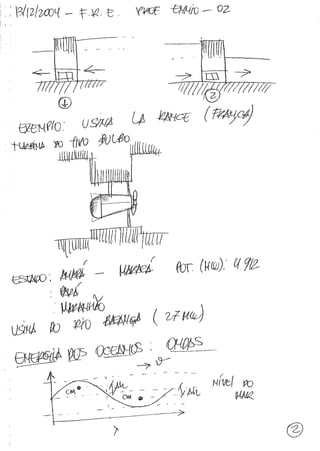 13/12/2004 - F.R.E. PROF. ENNIO - 02
1 2
EXEMPLO: USINA LA RANCE (FRANÇA)
TURBINA DO TIPO BULBO
ESTADO: AMAPÁ - MARACÁ POT. (MW): 4.912
: PARÁ
: MARANHÃO
USINA DO RIO BACANGA (27 MW)
ENERGIA DOS OCEANOS: ONDAS
CM Δh
CM Δh NÍVEL DO
MAR
λ
2